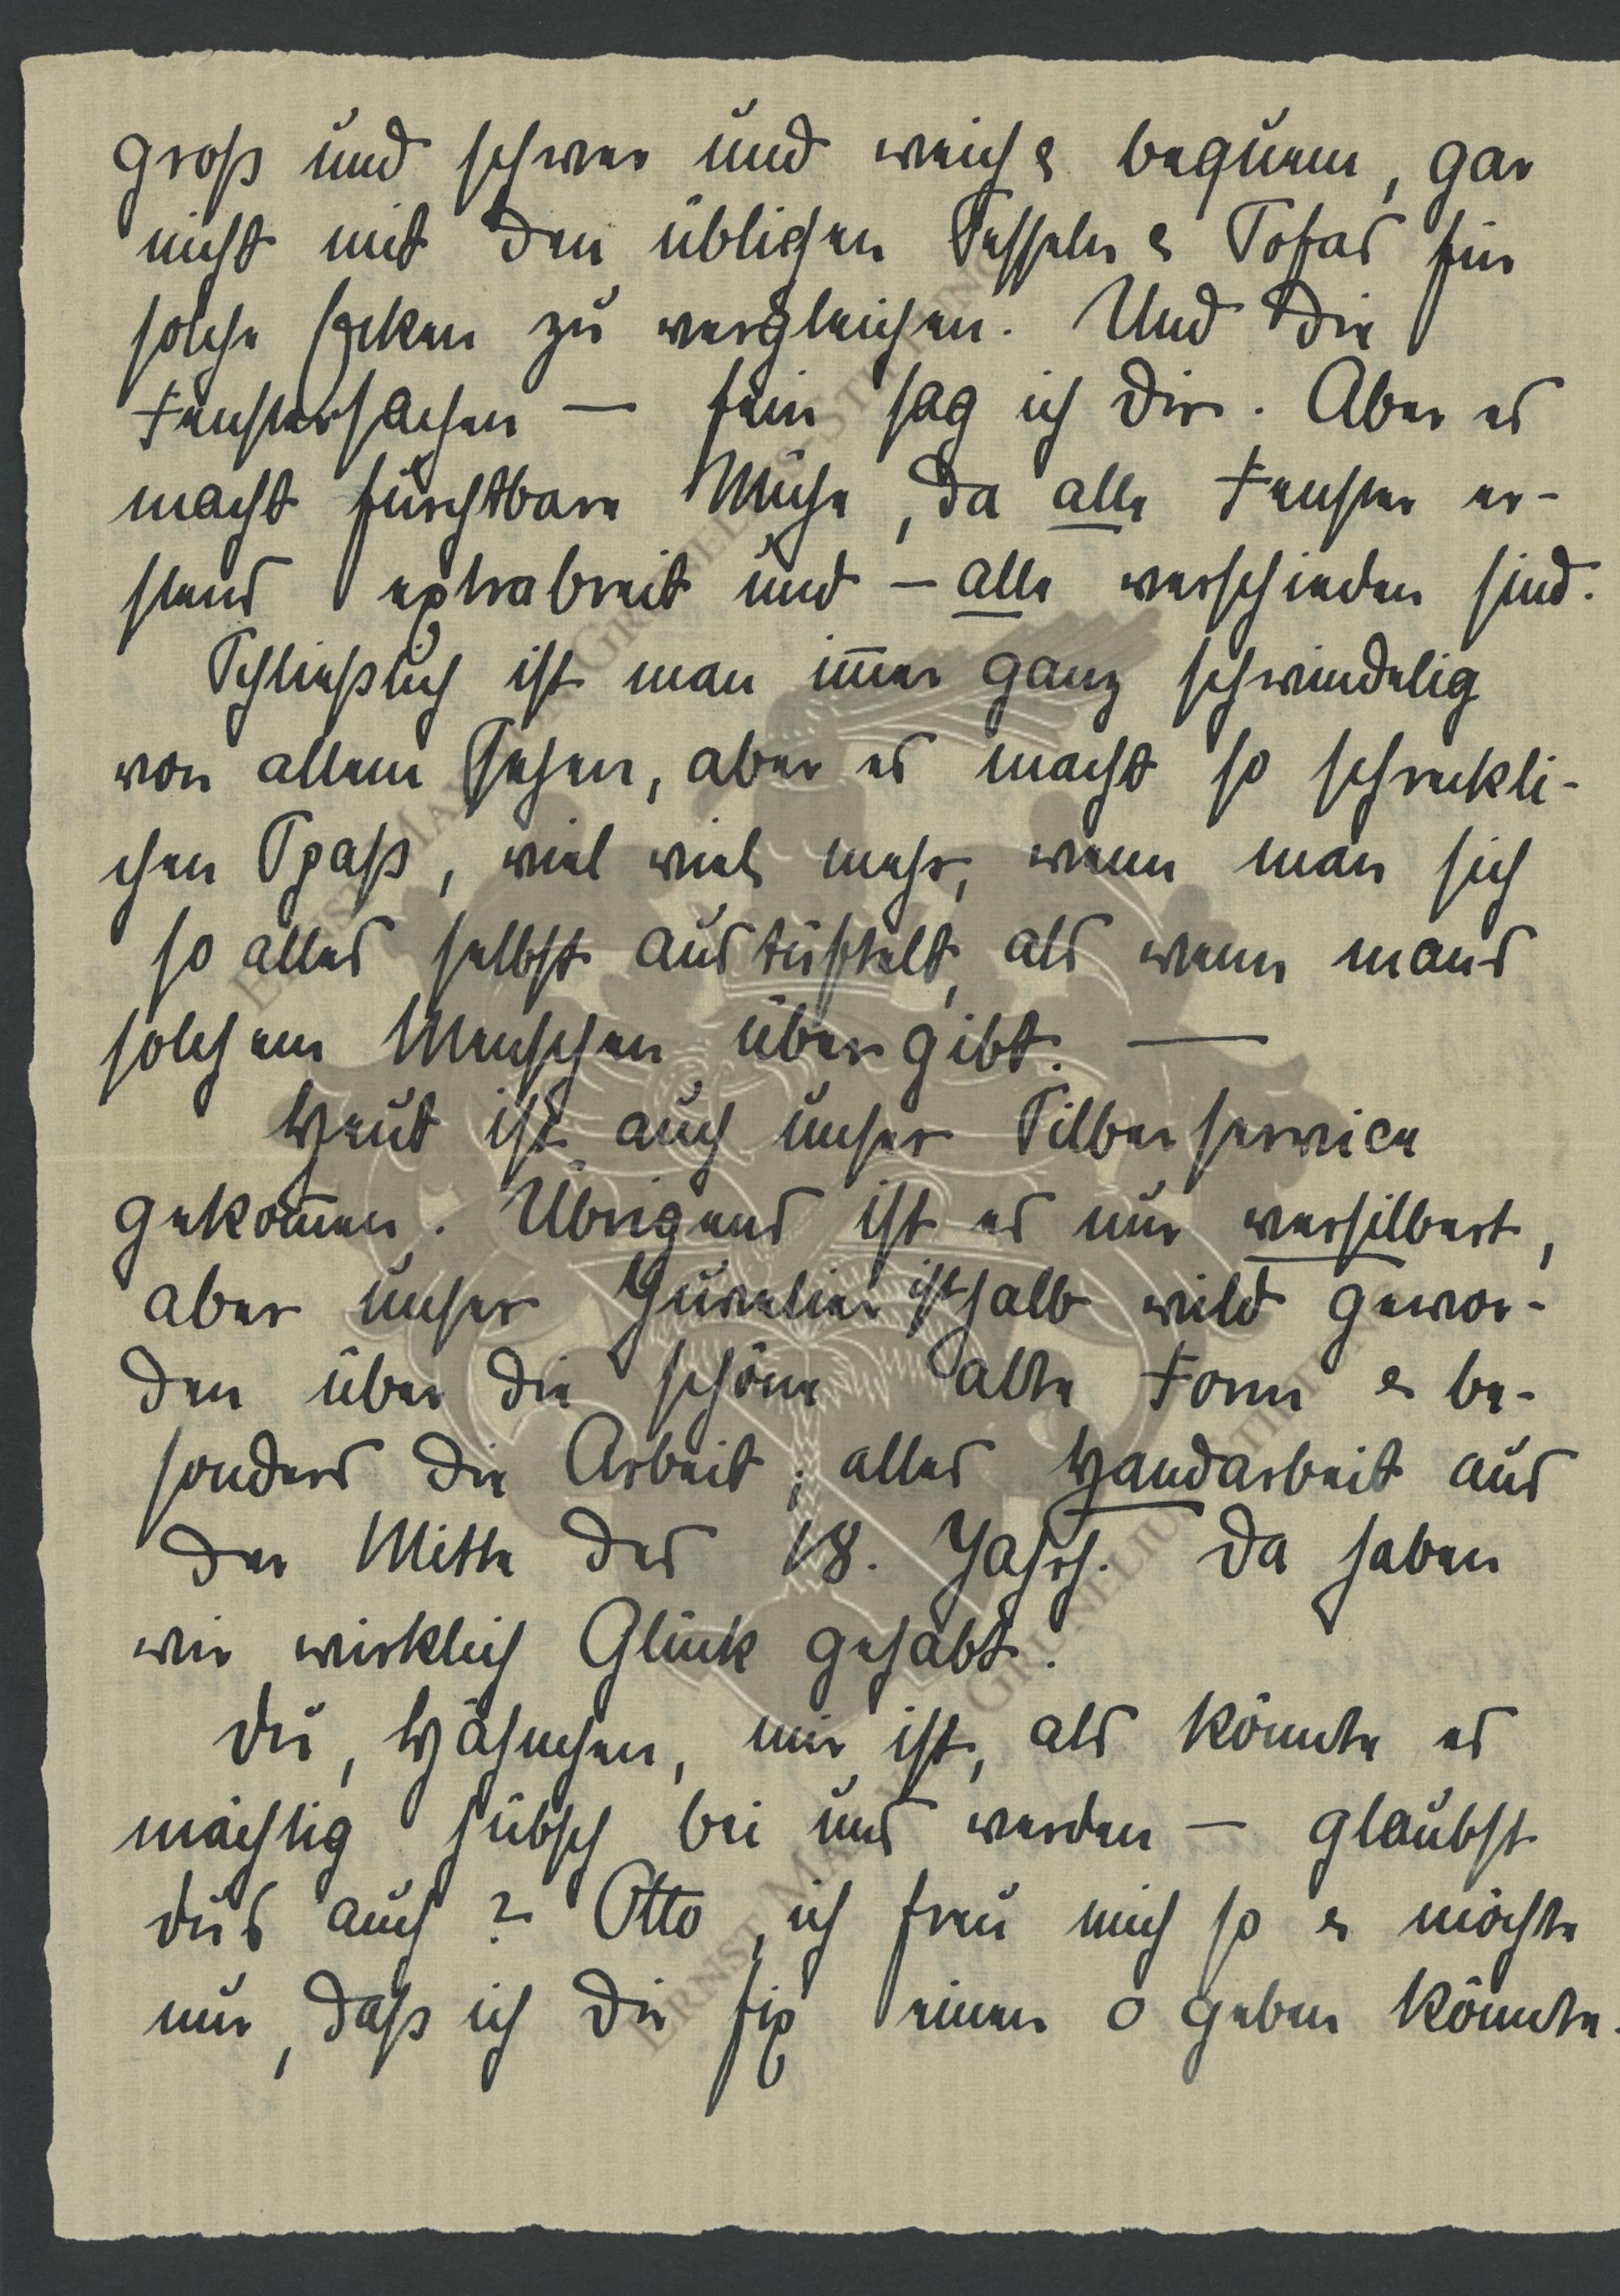 groß und schwer und weich & bequem, gar
nicht mit den üblichen Sesseln & Sofas für
solche Ecken zu vergleichen. Und die
Fenstersachen — fein sag ich Dir. Aber es
macht furchtbare Mühe, da alle Fenster er-
stens extrabreit und — alle verschieden sind.
Schließlich ist man im̄er ganz schwindelig
von allem Sehen, aber es macht so schreckli-
chen Spaß, viel viel mehr, wenn man sich
so alles selbst austüftelt, als wenn mans
solchem Menschen übergibt. —
Heut ist auch unser Silberservice
gekom̄en. Übrigens ist es nur versilbert,
aber unser Juwelier ist halb wild gewor-
den über die schöne alte Form & be-
sonders die Arbeit, alles Handarbeit aus
der Mitte des 18. Jahrh. Da haben
wir wirklich Glück gehabt.
Du, Hähnchen, mir ist, als könnte es
mächtig hübsch bei uns werden — glaubst
du's auch? Otto, ich freu mich so & möchte
nur, daß ich Dir fix einen o geben könnte.
ERNST MAX VON GRUNELIUS-STIFTUNG
ERNST MAX VON GRUNELIUS-STIFTUNG